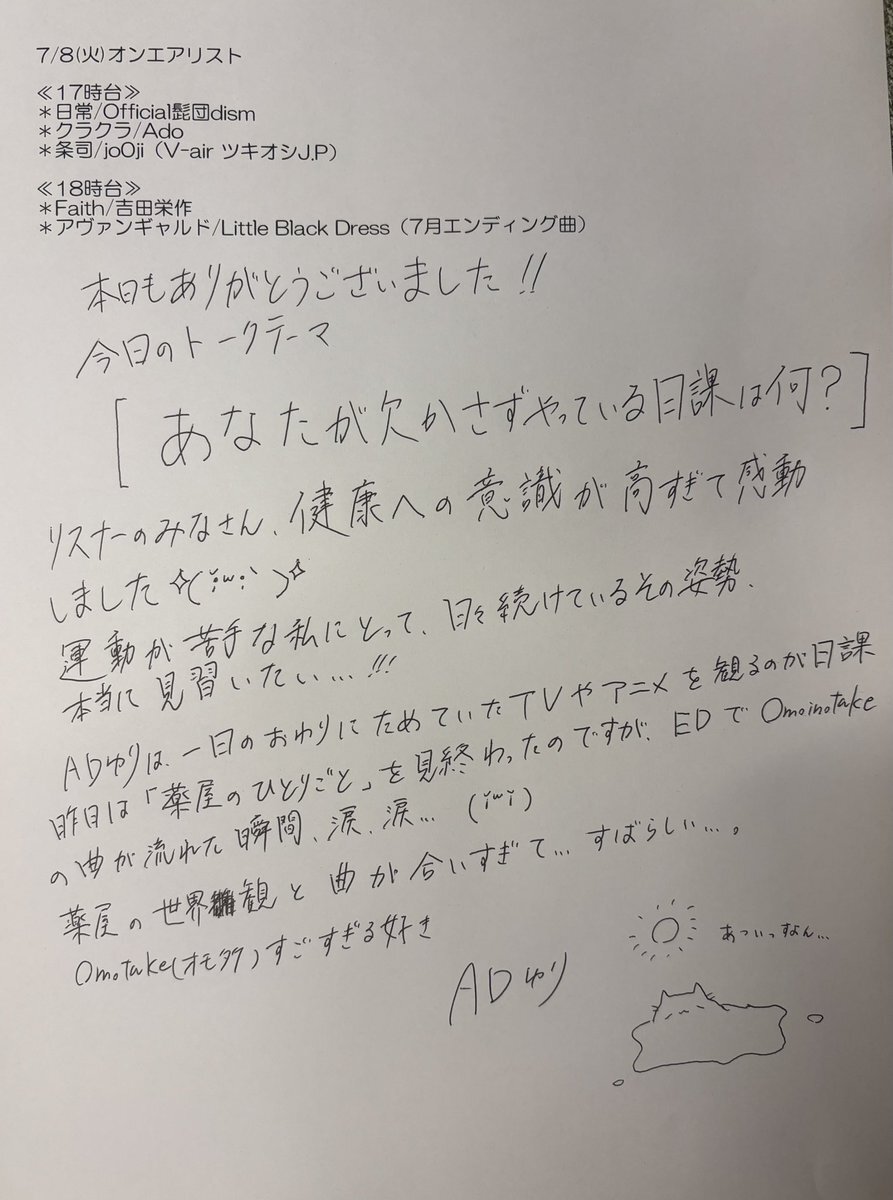 7/8(火)オンエアリスト
≪17時台≫
＊日常/Official髭団dism
＊クラクラ/Ado
＊条司/joOji（V-air ツキオシJ.P）
≪18時台≫
＊Faith/吉田栄作
＊アヴァンギャルド/Little Black Dress（7月エンディング曲）
本日もありがとうございました!!
今日のトークテーマ
[あなたが欠かさずやっている日課は何?]
リスナーのみなさん、健康への意識が高すぎて感動
しました
運動が苦手な私にとって、日々続けているその姿勢、
本当に見習いたい…!!!
ADゆりは、一日のおわりにためていたTVやアニメを観るのが日課
昨日は「薬屋のひとりごと」を見終わったのですが、EDでOmoinotake
の曲が流れた瞬間、涙、涙… (ｉｗｉ)
薬屋の世界観と曲が合いすぎて… すばらしい…。
Omotake(オモタケ)すごすぎる好き
ADゆり
あついっすよん…